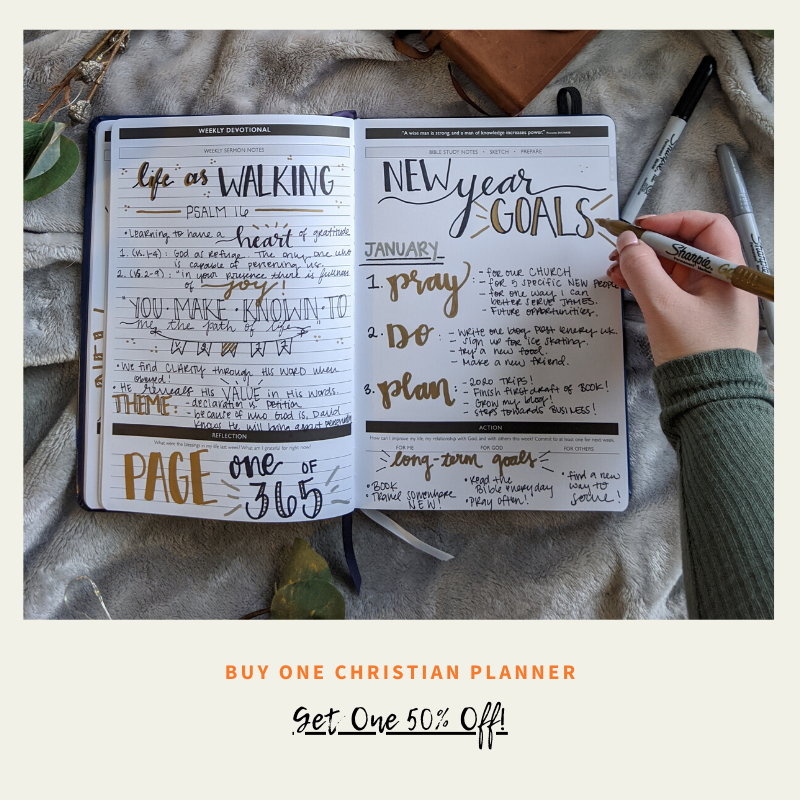 WEEKLY DEVOTIONAL
WEEKLY SERMON NOTES
life as WALKING
PSALM 16
• Learning to have a heart of gratitude
1. (16:1-4): God as Refuge. The only one who
is capable of
2. (16:2-9): "in your presence there is fullness
of joy!
"YOU MAKE KNOWN TO
me the path of life"
• We find CLARITY through His WORD when
obeyed!
• HE reveals His VALUE in His words.
THEME: - declaration vs. petition
- because of who God is, David
knows He will bring
REFLECTION
What were the blessings in my life last week? What am I grateful for right now?
PAGE one OF
365
"A wise man is strong, and a man of knowledge increases power."
BIBLE STUDY NOTES • SKETCH • PREPARE
NEW year
GOALS
JANUARY
1. pray : - for our CHURCH
- for 5 specific NEW PEOPLE
- for one way I can
better serve JAMES.
- Future opportunities.
2. DO : - write one blog post every wk.
- sign up for ice skating.
- try a new food.
- make a new friend.
3. plan : - 2020 TRIPS!
- Finish first draft of BOOK!
- Grow my blog!
- steps towards BUSINESS!
ACTION
How can I improve my life, my relationship with God, and with others this week? Commit to at least one for next week.
FOR ME FOR GOD FOR OTHERS
long-term goals
• BOOK
• Travel somewhere
NEW!
• Read the
Bible everyday
• Pray often!
• find a new
way to
serve!
Sharpie
BUY ONE CHRISTIAN PLANNER
Get One 50% Off!